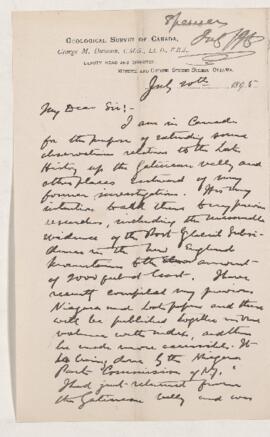 Spencer
July 1895
GEOLOGICAL SURVEY OF CANADA,
George M. Dawson, C.M.G., LL.D., F.R.S.,
DEPUTY HEAD AND DIRECTOR
SUSSEX AND GEORGE STREETS OTTAWA.
July 20th 1895
My Dear Sir:-
I am in Canada
for the purpose of extending some
observations relative to the Lake
History up the Gatineau valley and
other places outside of my
former investigations. It is my
intention to add them to my previous
researches, including the
evidence of the Post Glacial Subsi-
dence in the New England
mountains to the amount
of 2000 feet or least. I have
recently compiled my previous
Niagara and Lake papers and these
will be published together in one
volume with index, and thus
be made more accessible. It
is being done by the Niagara
Park Commission of N.Y.
I had just returned from
the Gatineau valley and was